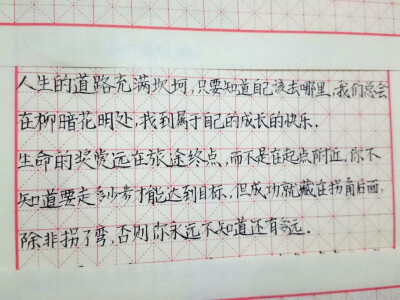 人生的道路充满坎坷,只要知道自己该去哪里,我们总会
在柳暗花明处,找到属于自己的成长的快乐.
生命的奖赏远在旅途终点,而不是在起点附近,你不
知道要走多少步才能达到目标,但成功就藏在拐角后面,
除非拐了弯,否则你永远不知道还有多远.